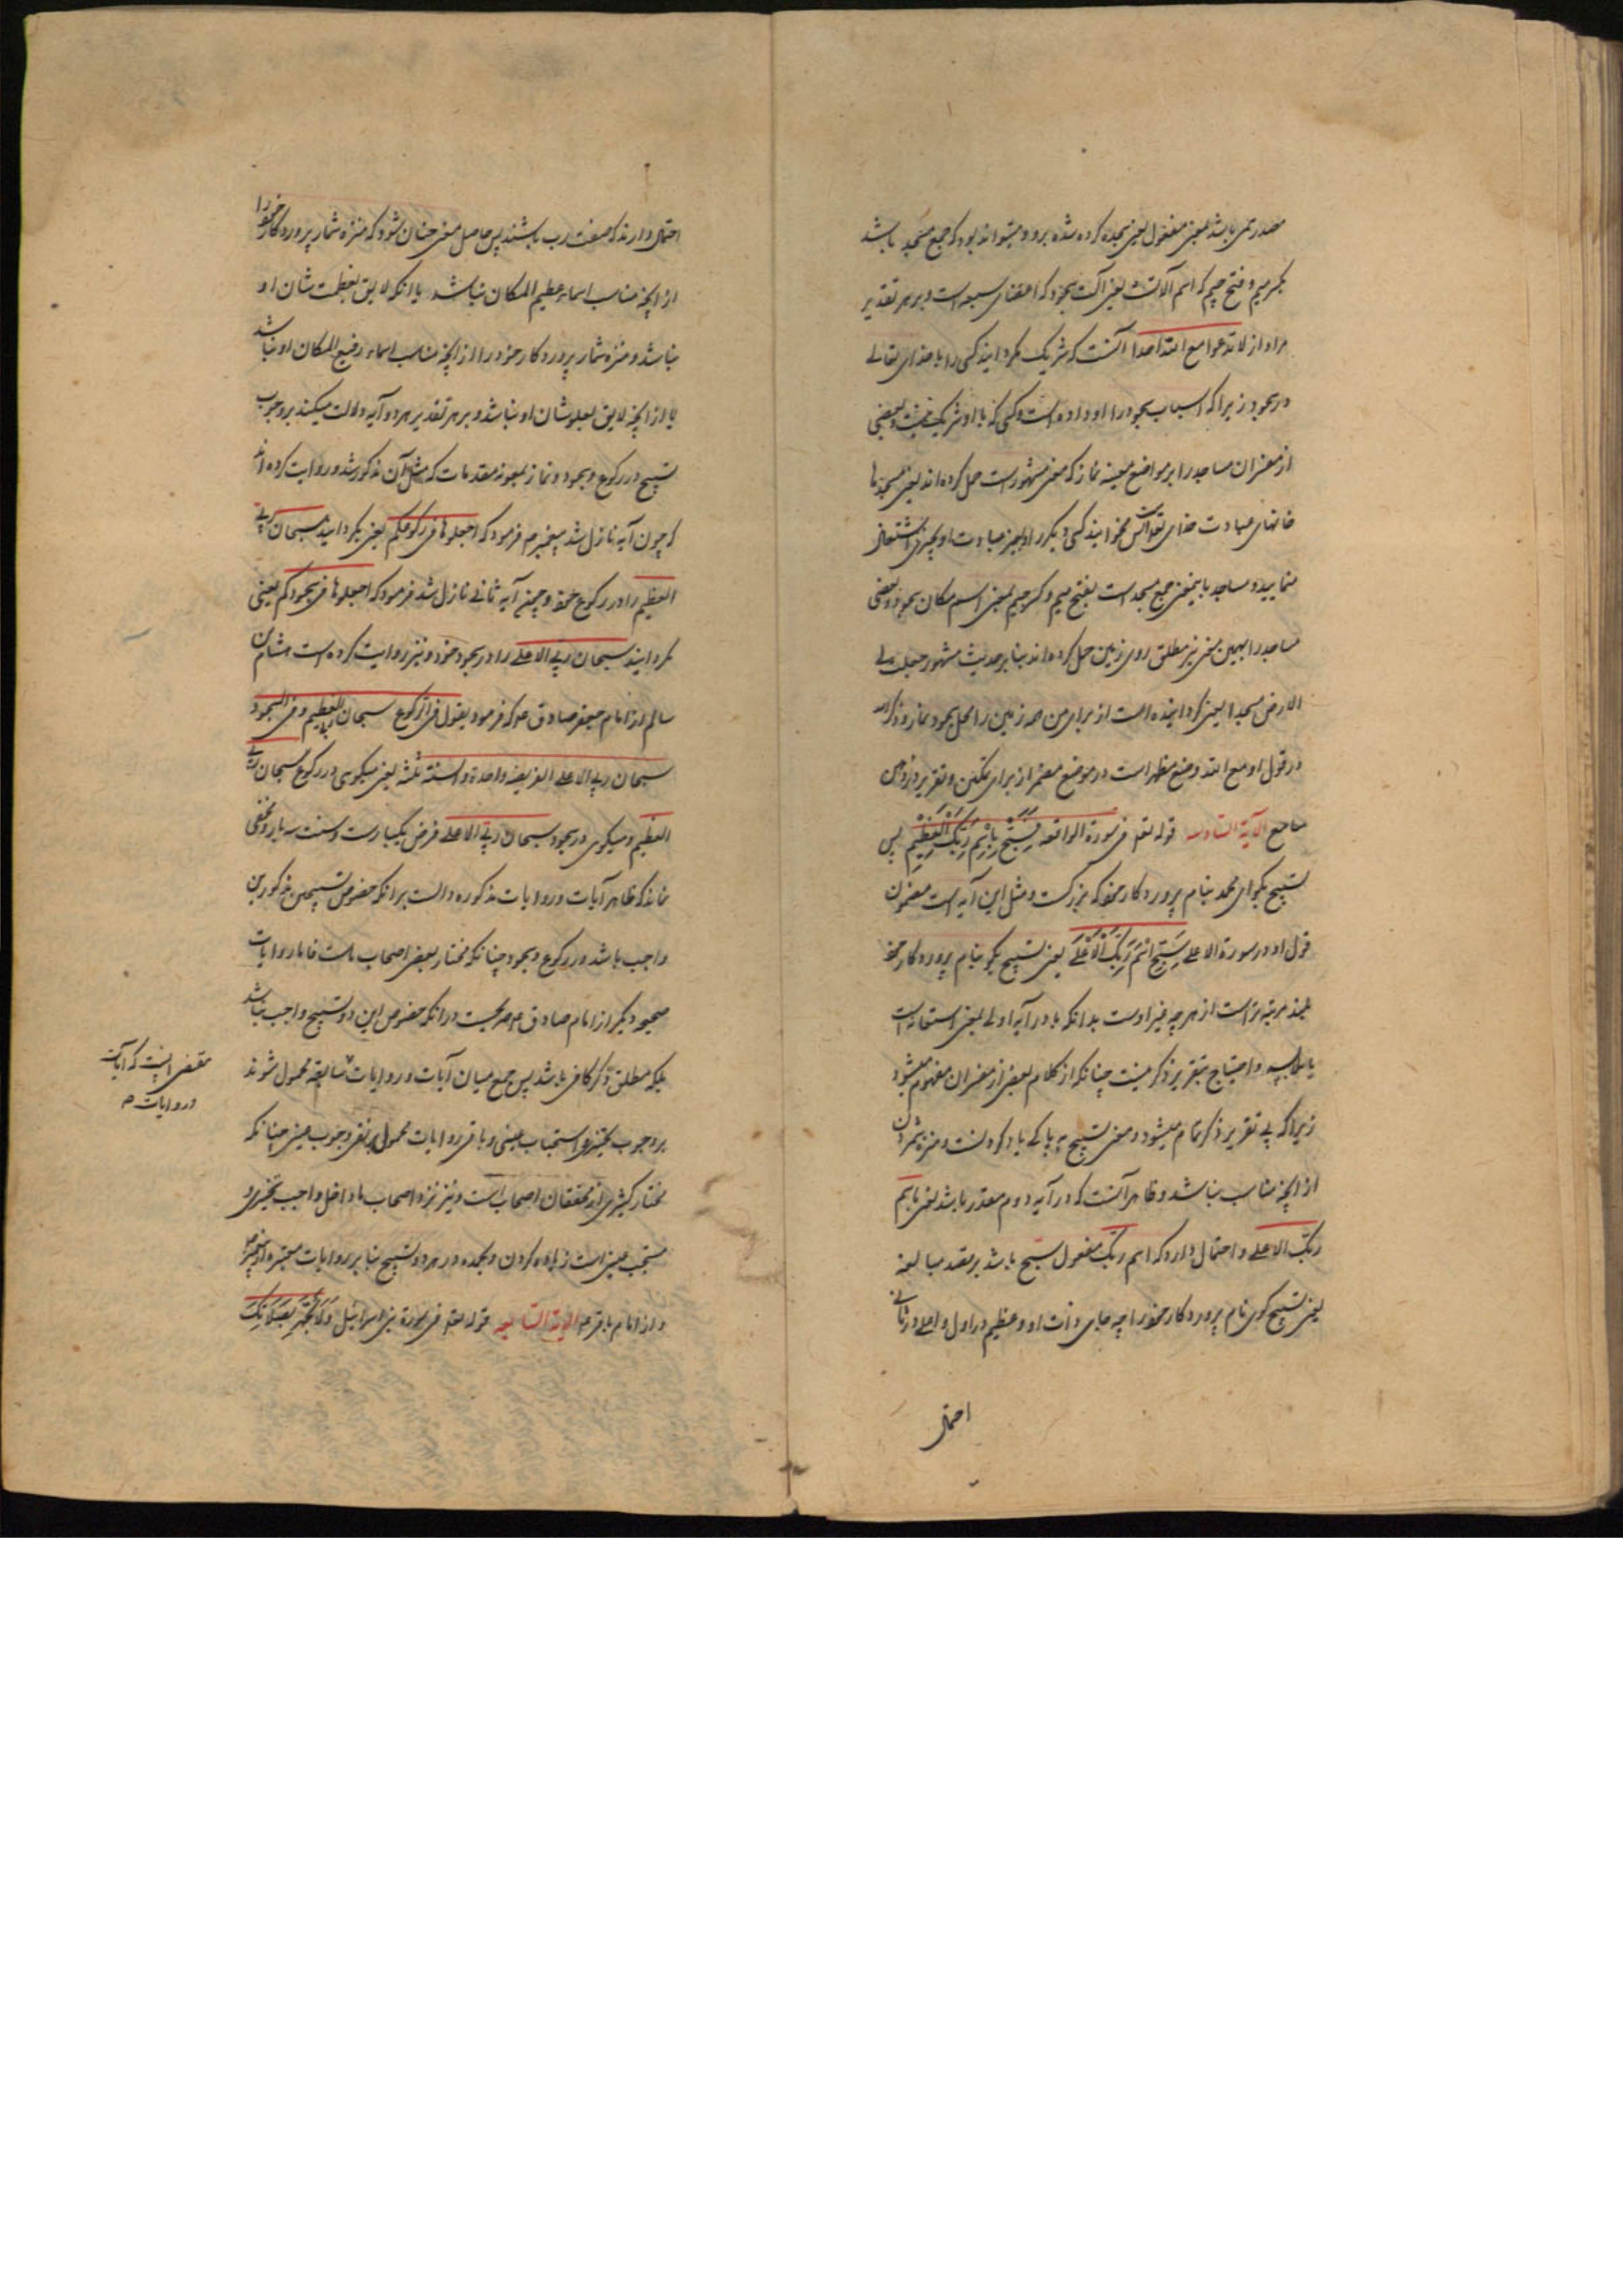 مصدر میمی باشد بمعنی مفعول یعنی سجده کرده شده برو و میتواند بود که جمع مسجد باشد
بکسر میم و فتح جیم که اسم آلتست یعنی آلت سجود که اعضای سبعه است و بر هر تقدیر
مراد از لا تدعوا مع الله احدا آنست که شریک مگردانید کسی را با خدای تعالی
در سجود زیرا که اسباب سجود را او داده است و کسی که با او شریک نیست و بعضی
از مفسران مساجد را بر مواضع معینه نماز که معنی مشهورست حمل کرده‌اند یعنی مسجدها
خانهای عبادت خدای تعالی است پس مخوانید کسی دیگر را و بغیر عبادت او بچیزی اشتغال
منمایید و مساجد باینمعنی جمع مسجد است بفتح میم و کسر جیم بمعنی اسم مکان سجود و بعضی
مساجد را بهمین معنی بر مطلق روی زمین حمل کرده‌اند بنا بر حدیث مشهور جعلت لی
الارض مسجدا یعنی گردانیده است از برای من همه زمین را محل سجود نماز و ذکر الله
در قول او مع الله وضع مظهر است در موضع مضمر از برای تمکین و تقریر در ذهن
سامع الآیة السادسه قوله تعالی فی سورة الواقعه فَسَبِّحْ بِاسْمِ رَبِّكَ الْعَظِیمِ پس
تسبیح بگو ای محمد بنام پروردگار خود که بزرگست و مثل این آیه است مضمون
قول او در سورة الاعلی سَبِّحِ اسْمَ رَبِّكَ الْأَعْلَی یعنی تسبیح بگو بنام پروردگار خود
بلند مرتبه‌تر است از هر چه غیر اوست بدانکه با در آیه اولی بمعنی استعانت است
یا ملابسه و احتیاج بتقدیر ذکر نیست چنانکه از کلام بعضی از مفسران مفهوم میشود
زیرا که بی تقدیر ذکر تمام میشود و معنی تسبیح به پاکی یاد کردنست و منزه شمردن
از آنچه مناسب نباشد و ظاهر آنست که در آیه دوم مقدر باشد یعنی باسم
ربک الاعلی و احتمال دارد که اسم ربک مفعول سبح باشد بر قصد مبالغه
یعنی تسبیح گوی نام پروردگار خود را چه جای ذات او و عظیم در اول و اعلی در ثانی
احتمال
احتمال دارند که صفت رب باشند پس حاصل معنی چنان شود که منزه شمار پروردگار خود را
از آنچه مناسب اسماء عظیم المکان نباشد یا آنکه لایق بعظمت شان او
نباشد و منزه شمار پروردگار خود را از آنچه مناسب اسماء رفیع المکان او نباشد
یا از آنچه لایق بعلو شان او نباشد و بر هر تقدیر هر دو آیه دلالت میکند بر وجوب
تسبیح در رکوع و سجود و نماز بمعونه مقدمات که مثل آن مذکور شد و روایت کرده‌اند
که چون آیه نازل شد پیغمبر م فرمود که اجعلوها فی رکوعکم یعنی بگردانید سبحان ربی
العظیم را در رکوع خود و چون آیه ثانی نازل شد فرمود که اجعلوها فی سجودکم یعنی
بگردانید سبحان ربی الاعلی را در سجود خود و نیز روایت کرده است هشام بن
سالم از امام جعفر صادق ع که فرمود یقول فی الرکوع سبحان ربی العظیم و فی السجود
سبحان ربی الاعلی الفریضه واحدة و السنة ثلثه یعنی میگوی در رکوع سبحان ربی
العظیم و میگوی در سجود سبحان ربی الاعلی فرض یکبارست و سنت سه بار و مخفی
نماند که ظاهر آیات و روایات مذکوره دالست برانکه خصوص تسبیحین مذکورین
واجب باشد در رکوع و سجود چنانکه مختار بعضی اصحاب ماست فاما روایات
صحیحه دیگر از امام صادق ع صریحست در آنکه خصوص این دو تسبیح واجب نباشد
بلکه مطلق ذکر کافی باشد پس جمع میان آیات و روایات سابقه محمول شوند
مقتضی آنست که آیات
و روایات م
بر وجوب تخییری و استحباب عینی و باقی روایات محمول بر نفی وجوب عینی چنانکه
مختار کثیری از محققان اصحابست و نیز نزد اصحاب ما داخل واجب تخییری و
مستحب عینی است زیاده کردن و بحمده در هر دو تسبیح بنا بر روایات معتبره از پیغمبر
و از امام باقر ع الآیة السابعه قوله تعالی فی سورة بنی اسرائیل وَلَا تَجْهَرْ بِصَلَاتِكَ